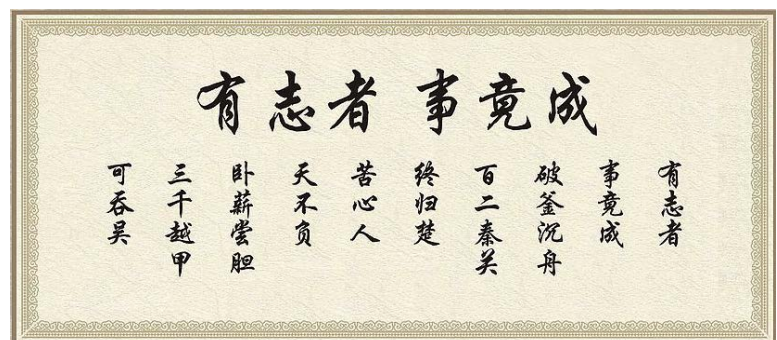 有志者 事竟成
有志者
事竟成
破釜沉舟
百二秦关
终归楚
苦心人
天不负
卧薪尝胆
三千越甲
可吞吴